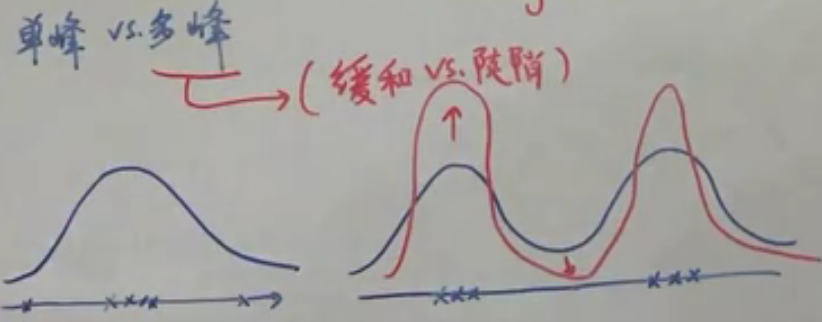 单峰 vs. 多峰
(缓和 vs. 陡峭)